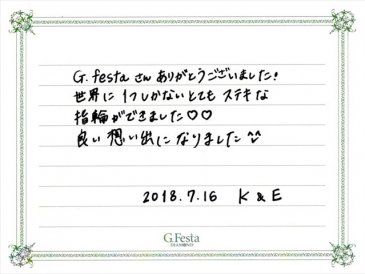 G.festaさんありがとうございました!
世界に1つしかないとてもステキな
指輪ができました♡♡
良い想い出になりました^^
2018.7.16 K & E
G.Festa
DIAMOND